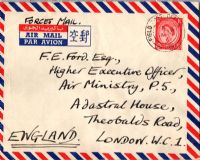 FORCES MAIL.
بالبريد الجوي
AIR MAIL
PAR AVION
空郵
FIELD
F.E. Ford Esq.,
Higher Executive Officer,
Air Ministry, P.5.,
Adastral House,
Theobalds Road,
London. W.C.1.
ENGLAND.